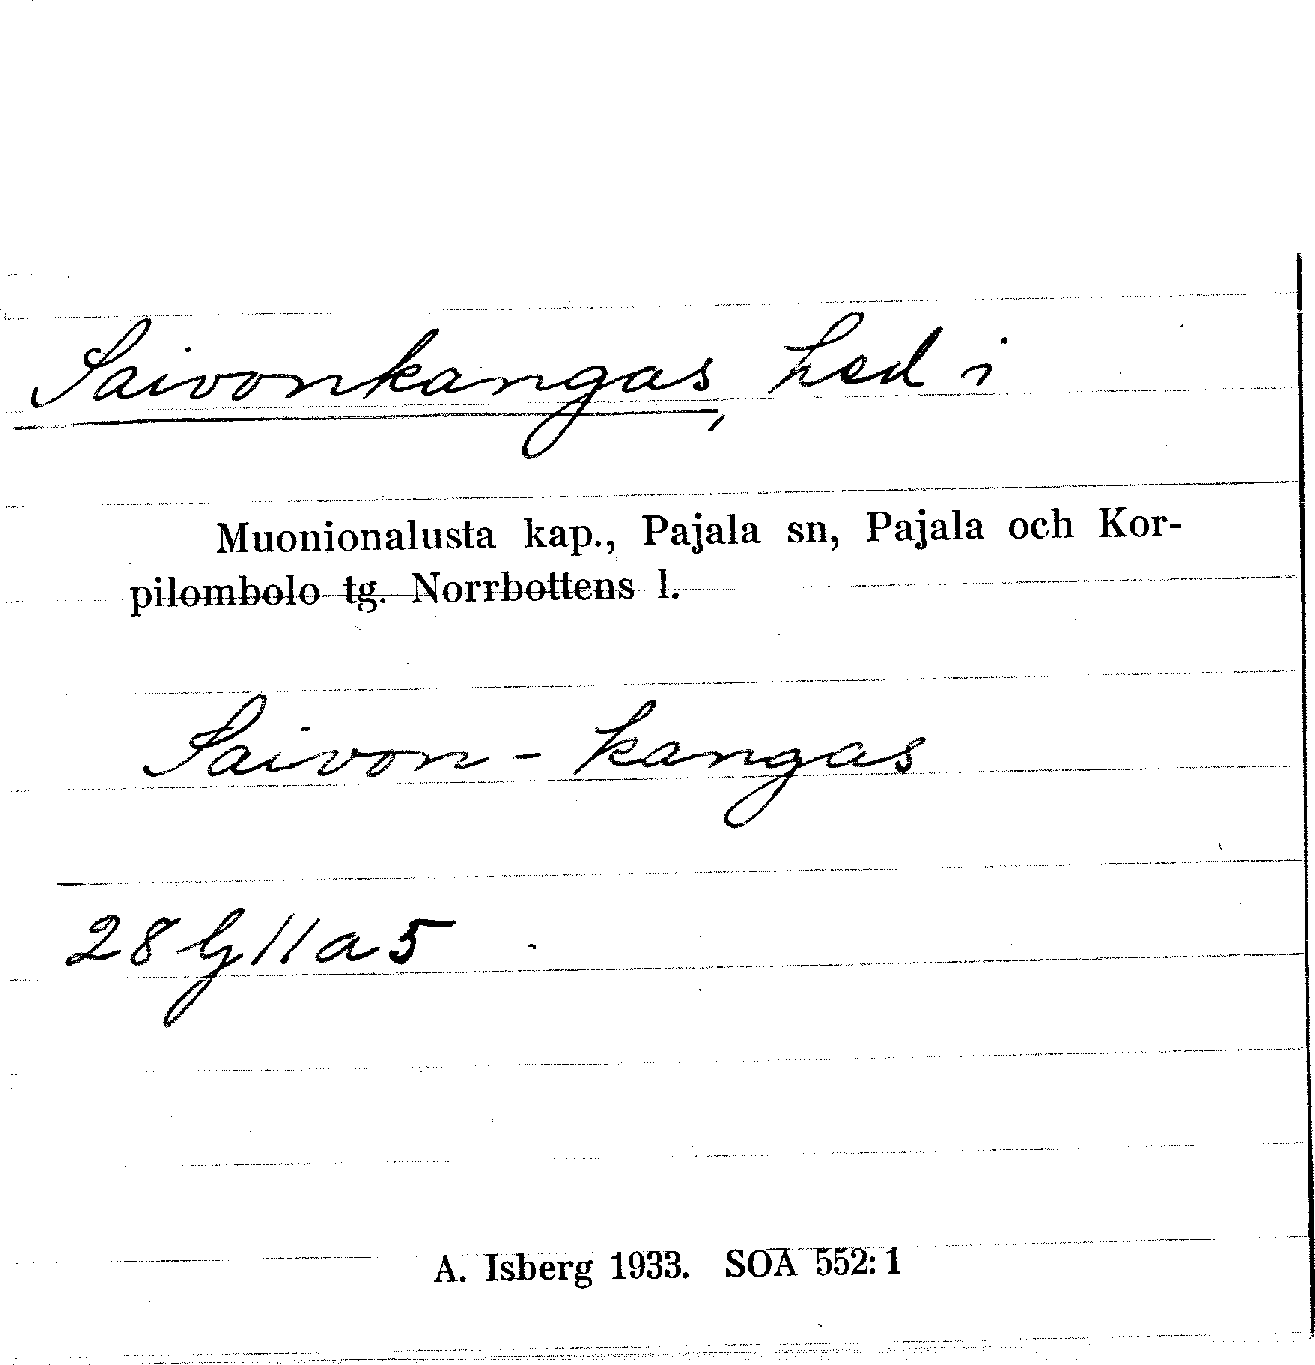 Saivonkangas, hed i
Muonionalusta kap., Pajala sn, Pajala och Kor-
pilombolo tg. Norrbottens l.
Saivon - kangas
28 G 11 a 5
A. Isberg 1933. SOA 552:1